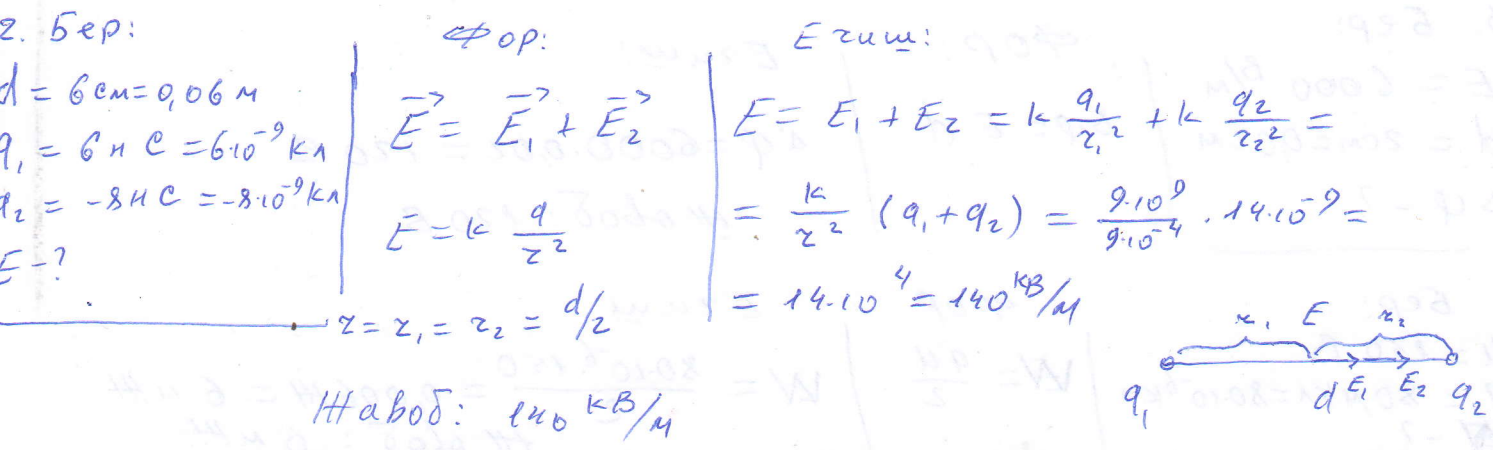 2. Бер:
d = 6 см = 0,06 м
q₁ = 6 н С = 6·10⁻⁹ кл
q₂ = -8 н С = -8·10⁻⁹ кл
E - ?
Фор:
E⃗ = E⃗₁ + E⃗₂
E = k q/r²
r = r₁ = r₂ = d/2
Ечиш:
E = E₁ + E₂ = k q₁/r₁² + k q₂/r₂² =
= k/r² (q₁ + q₂) = 9·10⁹/9·10⁻⁴ · 14·10⁻⁹ =
= 14·10⁴ = 140 кВ/м
r₁ E r₂
q₁ d E₁ E₂ q₂
Жавоб: 140 кВ/м